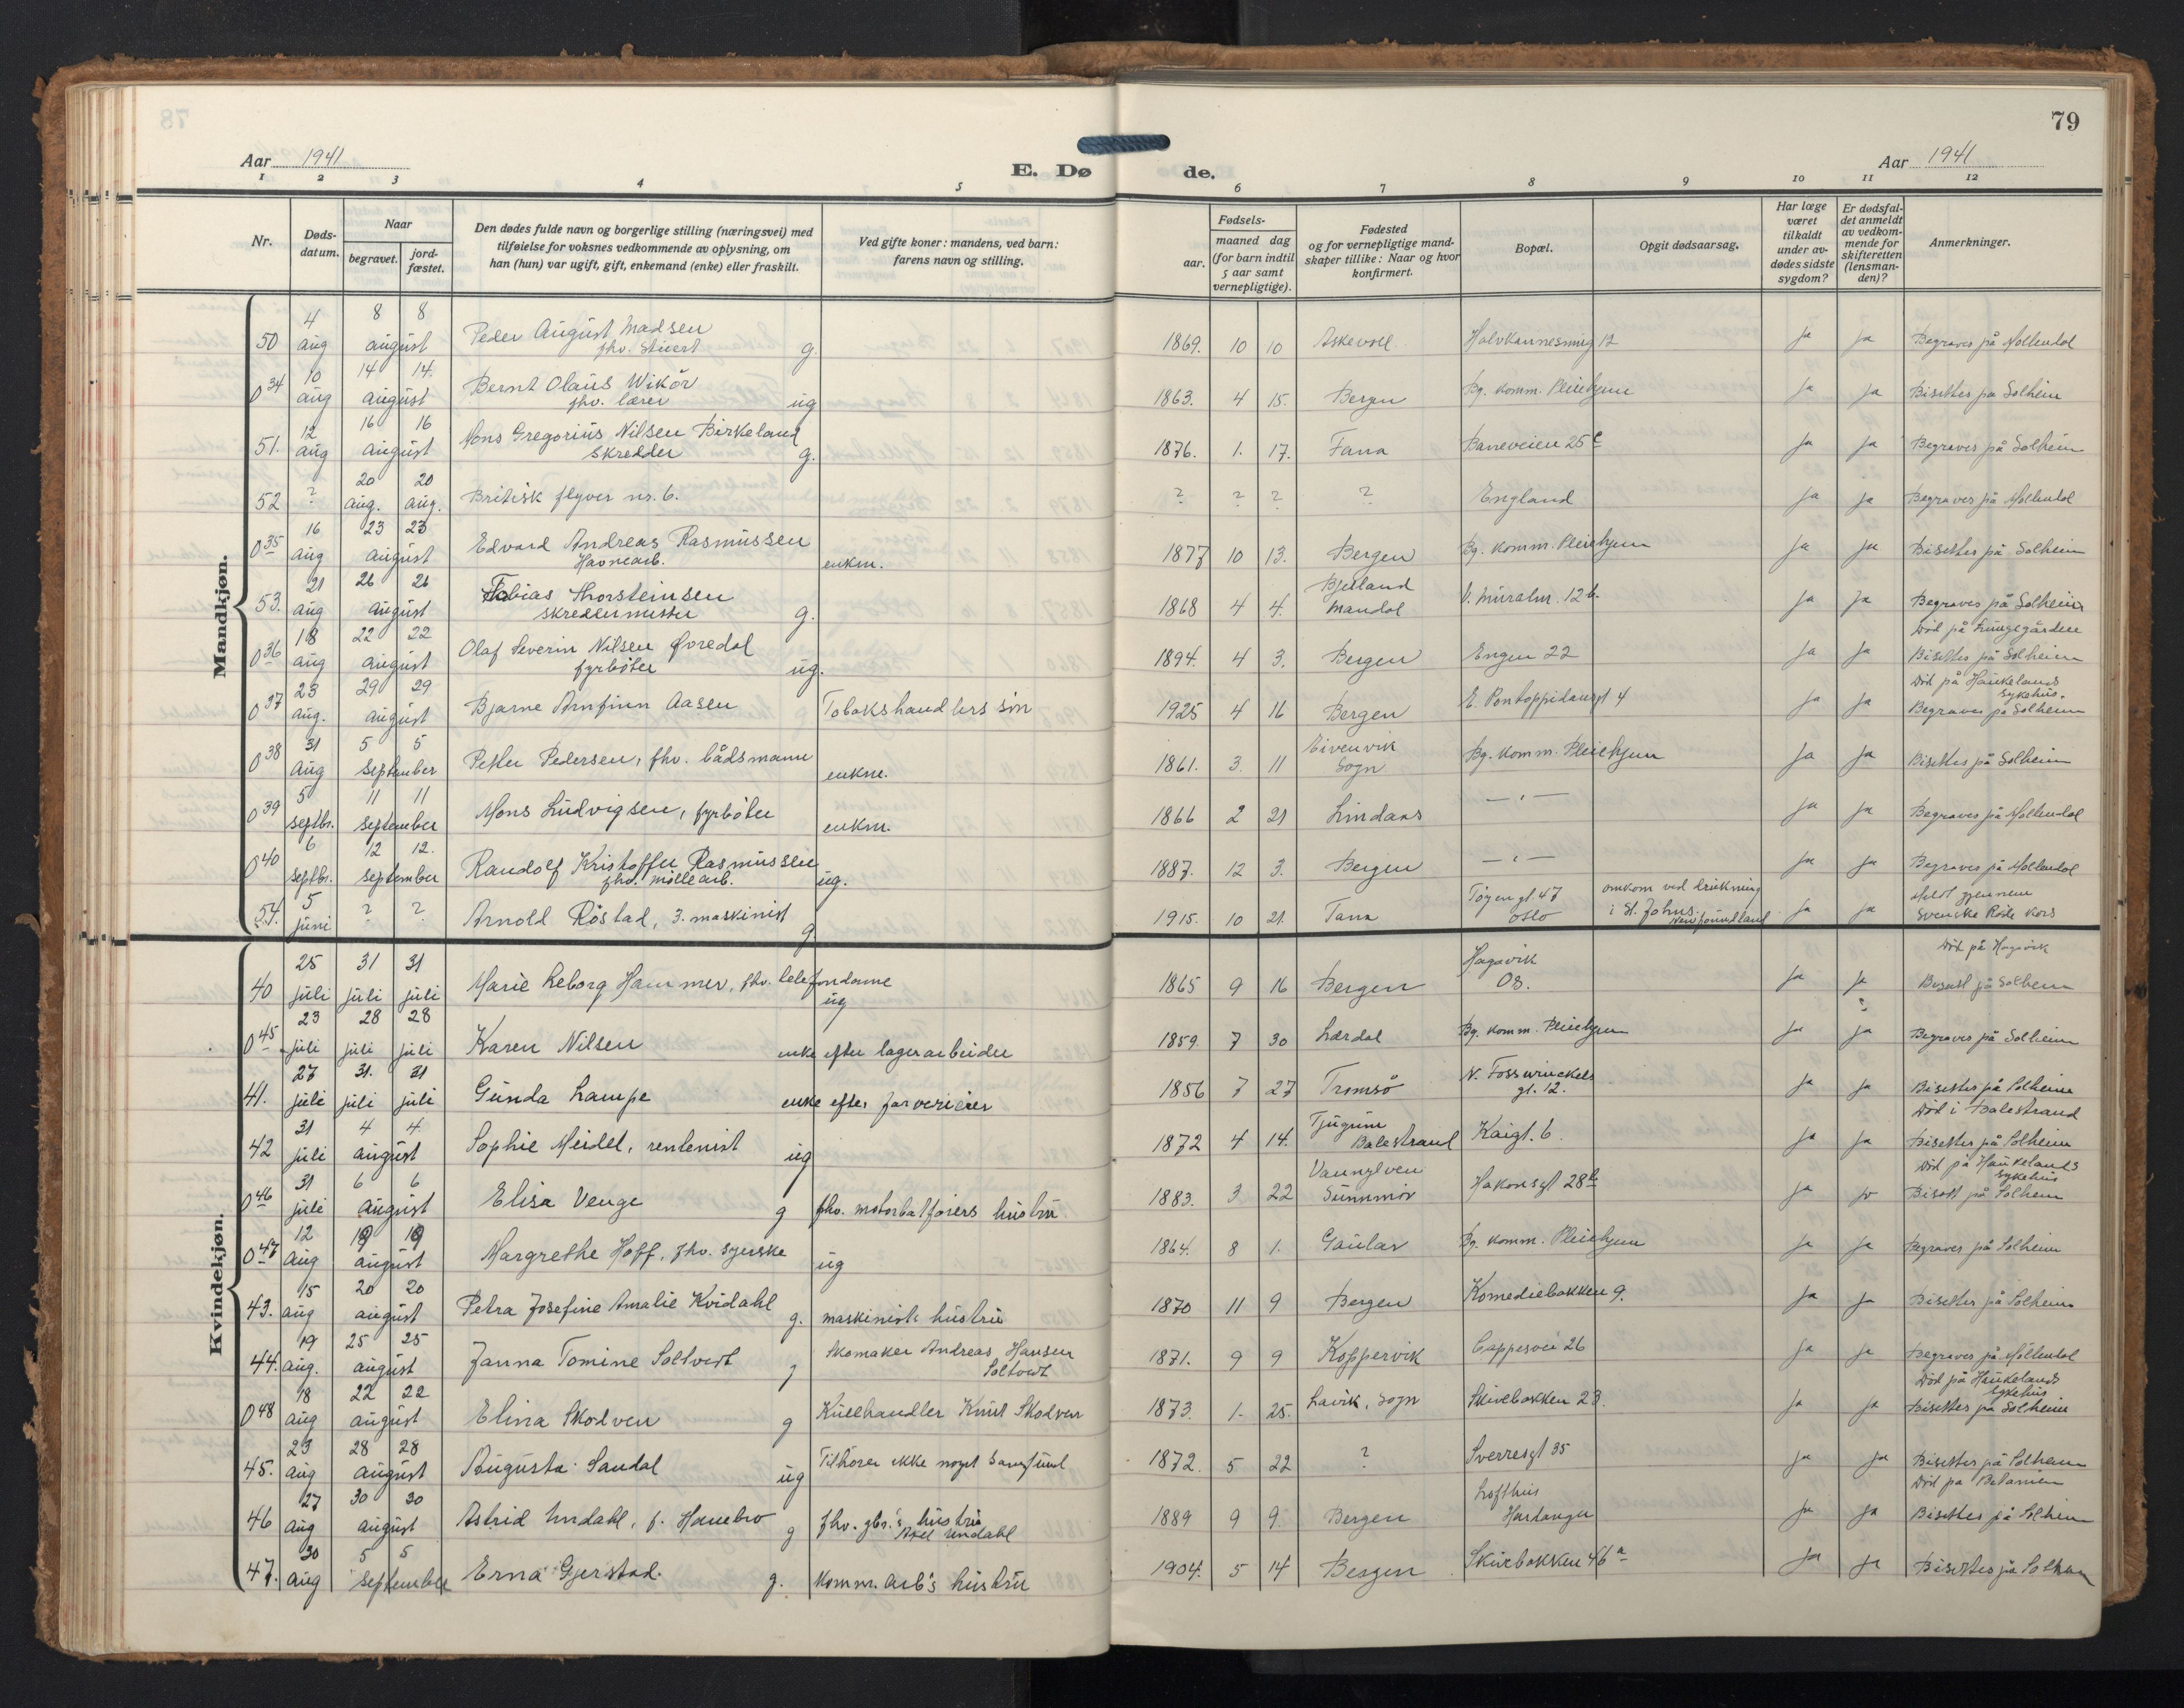 78
79
Aar 1941
E. Dø de.
Aar 1941
1 2 3 4 5 6 7 8 9 10 11 12
Nr.
Døds-
datum.
Naar
begravet.
jord-
fæstet.
Den dødes fulde navn og borgerlige stilling (næringsvei) med
tilføielse for voksnes vedkommende av oplysning, om
han (hun) var ugift, gift, enkemand (enke) eller fraskilt.
Ved gifte koner: mandens, ved barn:
farens navn og stilling.
Fødsels-
aar.
maaned dag
(for barn indtil
5 aar samt
vernepligtige).
Fødested
og for vernepligtige mand-
skaper tillike: Naar og hvor
konfirmert.
Bopæl.
Opgit dødsaarsag.
Har læge
været
tilkaldt
under av-
dødes sidste
sygdom?
Er dødsfal-
det anmeldt
av vedkom-
mende for
skifteretten
(lensman-
den)?
Anmerkninger.
Mandkjøn.
50 4 aug 8 8 august Peder August Madsen fhv. stuert g. 1869. 10 10 Askevoll Halvkannesmug 12 ja ja Begraves på Møllendal
0 34 10 aug 14 14. august Bernt Olaus Wikör fhv. lærer ug 1863. 4 15. Bergen Bg. komm. Pleiehjem ja ja Bisettes på Solheim
51. 12 aug 16 16 august Mons Gregorius Nilsen Birkeland skredder g. 1876. 1. 17. Fana Baneveien 25 c ja ja Begraves på Solheim
52 ? 20 aug. 20 aug. Britisk flyver nr. 6. ? ? ? ? England ja ja Begraves på Møllendal
0 35 16 aug 23 23 august Edvard Andreas Rasmussen Havnearb. enkm. 1877 10 13. Bergen Bg. komm. Pleiehjem ja ja Bisettes på Solheim
53. 21 aug 26 26 august Tobias Thorsteinsen skreddermester g. 1868 4 4. Bjelland Mandal V. Muralm. 12 b. ja ja Begraves på Solheim
0 36 18 aug 22 22 august Olaf Severin Nilsen Øvredal fyrbøter ug. 1894. 4 3. Bergen Engen 22 ja ja Död på Lungegården Bisettes på Solheim
0 37 23 aug. 29 29 august Bjarne Arnfinn Aasen Tobakshandlers sön 1925 4 16 Bergen E. Pontoppidansgt 4 ja ja Död på Haukelands sykehus. Begraves på Solheim
0 38 31 aug 5 5 september Petter Pedersen, fhv. bådsmann enkm. 1861. 3. 11 Eivenvik Sogn Bg. komm. Pleiehjem ja ja Bisettes på Solheim
0 39 5 septbr. 11 11 september Mons Ludvigsen, fyrböter enkm. 1866 2 21 Lindaas — " — ja ja Begraves på Møllendal
0 40 6 septbr. 12 12. september Randolf Kristoffer Rasmussen fhv. möllearb. ug. 1887. 12 3. Bergen — " — ja ja Begraves på Møllendal
54. 5 juni ? ? Arnold Röstad, 3. maskinist g 1915. 10 21. Tana Töyengt. 47 Oslo omkom ved drukning i St. Johns. Newfoundland ja ja Meldt gjennem Svenske Röde Kors
Kvindekjøn.
40 25 juli 31 juli 31 juli Marie Leborg Hammer, fhv. telefondame ug 1865 9 16 Bergen Hagavik Os. ja ja Död på Hagavik Bisatt på Solheim
0 45 23 juli 28 juli 28 juli Karen Nilsen enke efter lagerarbeider 1859. 7 30 Lærdal Bg. komm. Pleiehjem ja ja Begraves på Solheim
41. 27 juli 31. juli 31 juli Gunda Lampe enke efter farverieier 1856 7 27 Tromsö N. Fosswinckels gt. 12. ja ja Bisettes på Solheim
42 31 juli 4 4 august Sophie Meidel, rentenist ug 1872 4 14. Tjugum Balestrand Kaigt. 6. ja ja Död i Balestrand Bisettes på Solheim
0 46 31 juli 6 6 august Elisa Venge g fhv. motorbåtförers hustru 1883. 3 22 Vannylven Sunnmör Hakonsgt 28 b ja ja Död på Haukelands sykehus Bisatt på Solheim
0 47 12 aug 19 19 august Margrethe Hoff, fhv. syerske ug 1864. 8 1. Gaular Bg. komm. Pleiehjem ja ja Begraves på Solheim
43. 15 aug 20 20 august Petra Josefine Amalie Kvidahl g. maskinists hustru 1870 11 9 Bergen Komediebakken 9. ja ja Bisettes på Solheim
44. 19 aug. 25 25 august Janna Tomine Soltvedt g Skomaker Andreas Hansen Soltvedt 1871. 9 9 Koppervik Cappesvei 26 ja ja Begraves på Möllendal
0 48 18 aug 22 22 august Elina Skodven g Kullhandler Knut Skodven 1873. 1. 25. Lavik, Sogn Skivebakken 23. ja ja Död på Haukelands sykehus Bisettes på Solheim
45. 23 aug 28 28 august Augusta Sandal ug Tilhörer ikke noget samfund 1872. 5 22 ? Sverresgt 35 ja ja Bisettes på Solheim
46 27 aug 30 30 august Astrid Undahl, f. Hanebo g fhv. gbr.'s hustru Axel Undahl 1889 9 9. Bergen Lofthus Hardanger ja ja Död på Betanien Bisettes på Solheim
47. 30 aug 5 5 september Erna Gjerstad. g. Komm. arb's hustru 1904. 5 14 Bergen Skivebakken 46 a ja ja Bisettes på Solheim